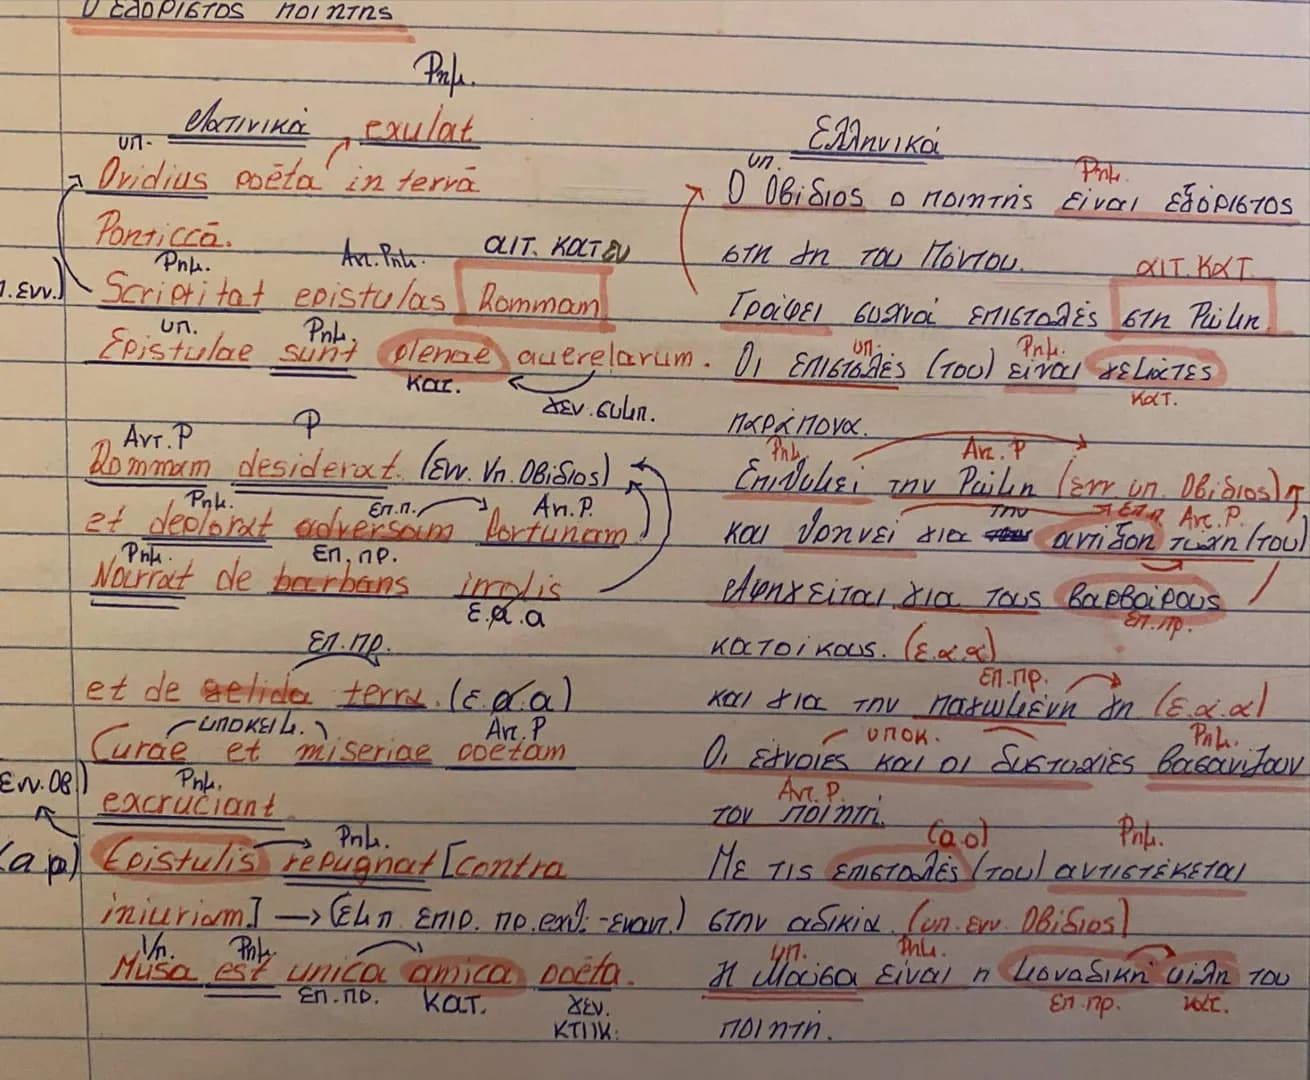 Ο εξόριστος ποιητής
Ρημ.
Λατινικά exulat
Ελληνικά
υπ.
Ovidius poëta in terrā
υπ. Ρημ.
Ο Οβίδιος ο ποιητής είναι εξόριστος
Ponticcā.
στη γη του Πόντου.
Ρημ. Αντ. Ρημ. αιτ. κατευ
αιτ. κατ.
Scriptitat epistulas Rommam
Γράφει συχνά επιστολές στη Ρώμη
υπ. Ρημ.
Epistulae sunt plenae querelarum.
υπ. Ρημ.
Οι επιστολές (του) είναι γεμάτες
κατ. γεν. συμπ.
κατ.
παράπονα.
Αντ. Ρ Ρ
Rommam desiderat (Ενν. Υπ. Οβίδιος)
Ρημ. Αντ. Ρ
Επιθυμεί την Ρώμη (ενν υπ. Οβίδιος)
Ρημ. Επ.π. Αντ. Ρ.
et deplorat adversam fortunam
την επ.π Αντ. Ρ.
και θρηνεί για αντίξοη τύχη (του)
Ρημ. Επ. πρ.
Narrat de barbaris incolis
Αφηγείται για τους βαρβάρους
ε.α.α
επ. πρ.
κατοίκους. (ε.α.α)
επ. πρ.
et de gelida terra. (ε.α.α)
επ. πρ.
και για την παγωμένη γη (ε.α.α)
υποκειμ. Αντ. Ρ
Curae et miseriae poëtam
υποκ. Ρημ.
Οι έγνοιες και οι δυστυχίες βασανίζουν
Ενν. Οβ) Ρημ.
excruciant.
Αντ. Ρ.
τον ποιητή.
(α.ο) Ρημ.
Ρημ.
(α.ρ) Epistulis repugnat [contra
Με τις επιστολές (του) αντιστέκεται
iniuriam] → (Εμπ. επιρ. πρ. εχθ. -εναντ.)
στην αδικία. (υπ. ενν. Οβίδιος)
Υπ. Ρημ.
Musa est unica amica poëta.
υπ. Ρημ.
Η Μούσα είναι η μοναδική φίλη του
επ. πρ. κατ. γεν. κτητικ.
επ. πρ. κατ.
ποιητή.